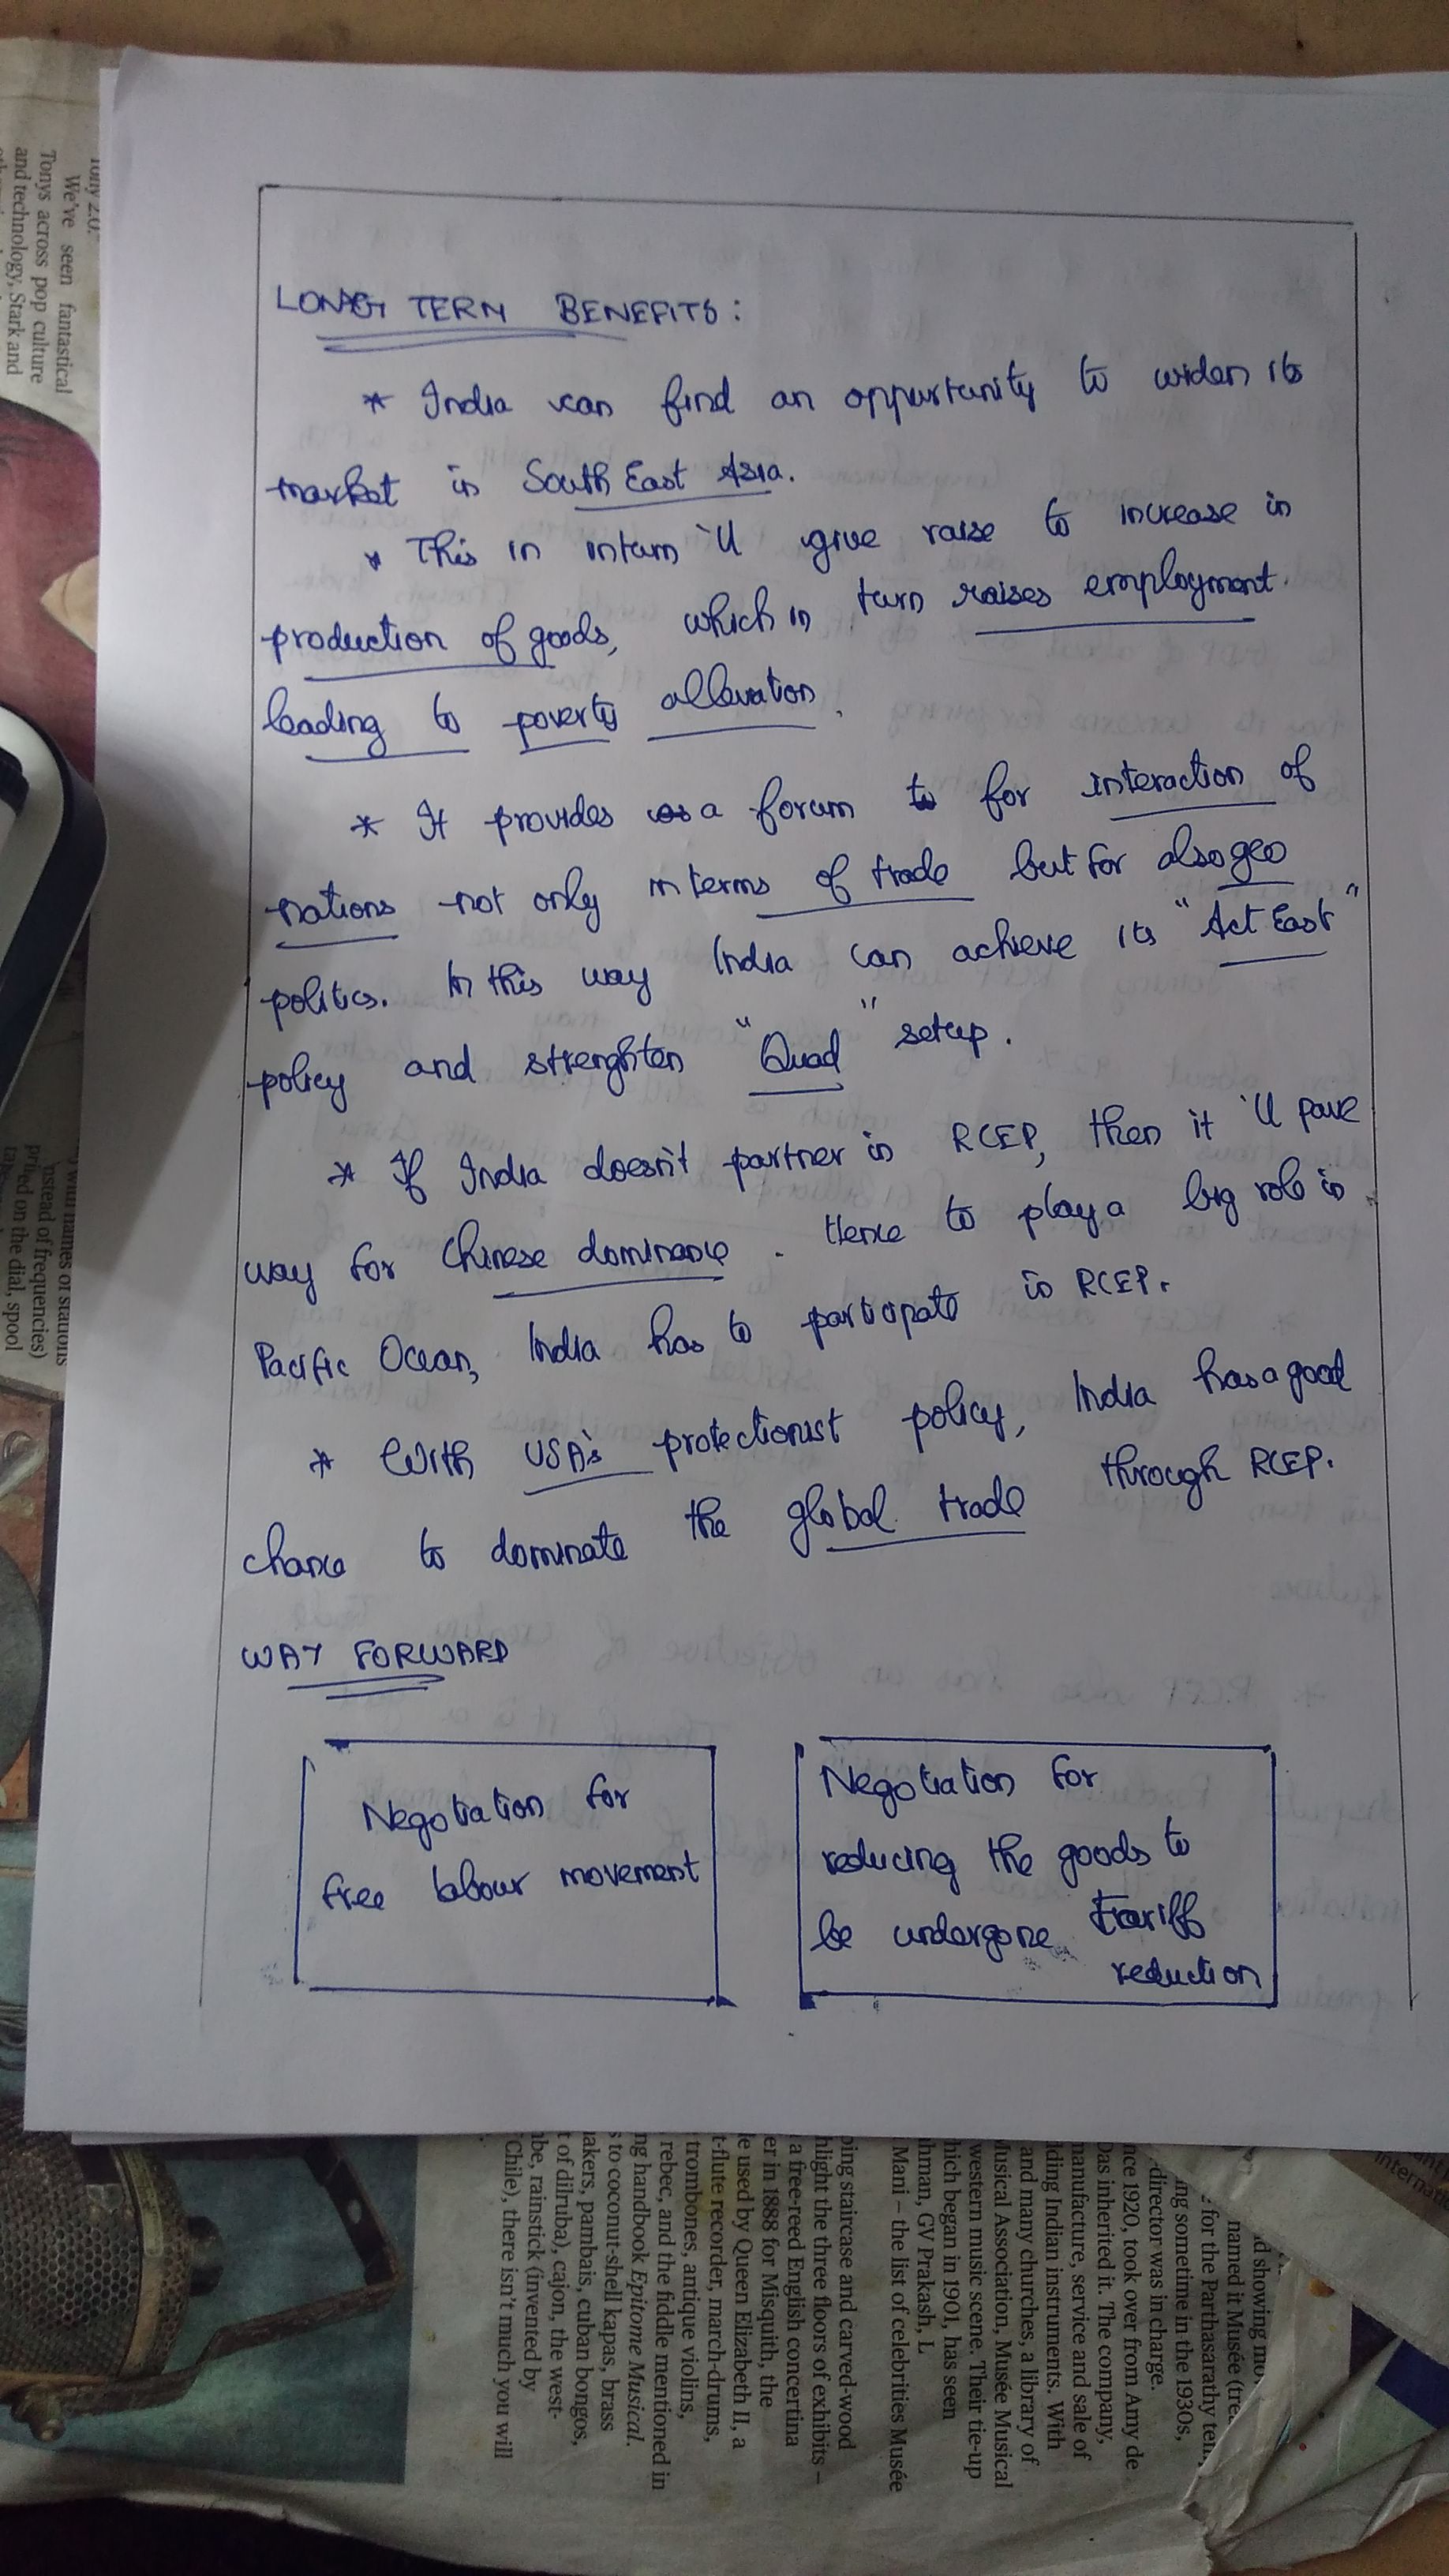 LONG TERM BENEFITS:
* India can find an opportunity to widen its
market in South East Asia.
* This in inturn 'll give raise to increase in
production of goods, which in turn raises employment
leading to poverty allevation.
* It provides a forum for interaction of
nations not only in terms of trade but for also geo
politics. In this way India can achieve its "Act East"
policy and strenghten "Quad" setup.
* If India doesn't partner in RCEP, then it 'll pave
way for Chinese dominance. Hence to play a big role in
Pacific Ocean, India has to participate in RCEP.
* With USA's protectionist policy, India has a good
chance to dominate the global trade through RCEP.
WAY FORWARD
Negotiation for
free labour movement
Negotiation for
reducing the goods to
be undergone tariff
reduction
We've seen fantastical
Tonys across pop culture
and technology, Stark and
instead of frequencies)
printed on the dial, spool
ping staircase and carved-wood
hlight the three floors of exhibits –
a free-reed English concertina
er in 1888 for Misquith, the
le used by Queen Elizabeth II, a
t-flute recorder, march-drums,
trombones, antique violins,
rebec, and the fiddle mentioned in
ng handbook Epitome Musical.
s to coconut-shell kapas, brass
akers, pambais, cuban bongos,
t of dilruba), cajon, the west-
be, rainstick (invented by
Chile), there isn't much you will
d showing
named it Musée
for the Parthasarathy
ing sometime in the 1930s,
director was in charge.
nce 1920, took over from Amy de
Das inherited it. The company,
manufacture, service and sale of
lding Indian instruments. With
and many churches, a library of
Musical Association, Musée Musical
western music scene. Their tie-up
hich began in 1901, has seen
hman, GV Prakash, L
Mani – the list of celebrities Musée